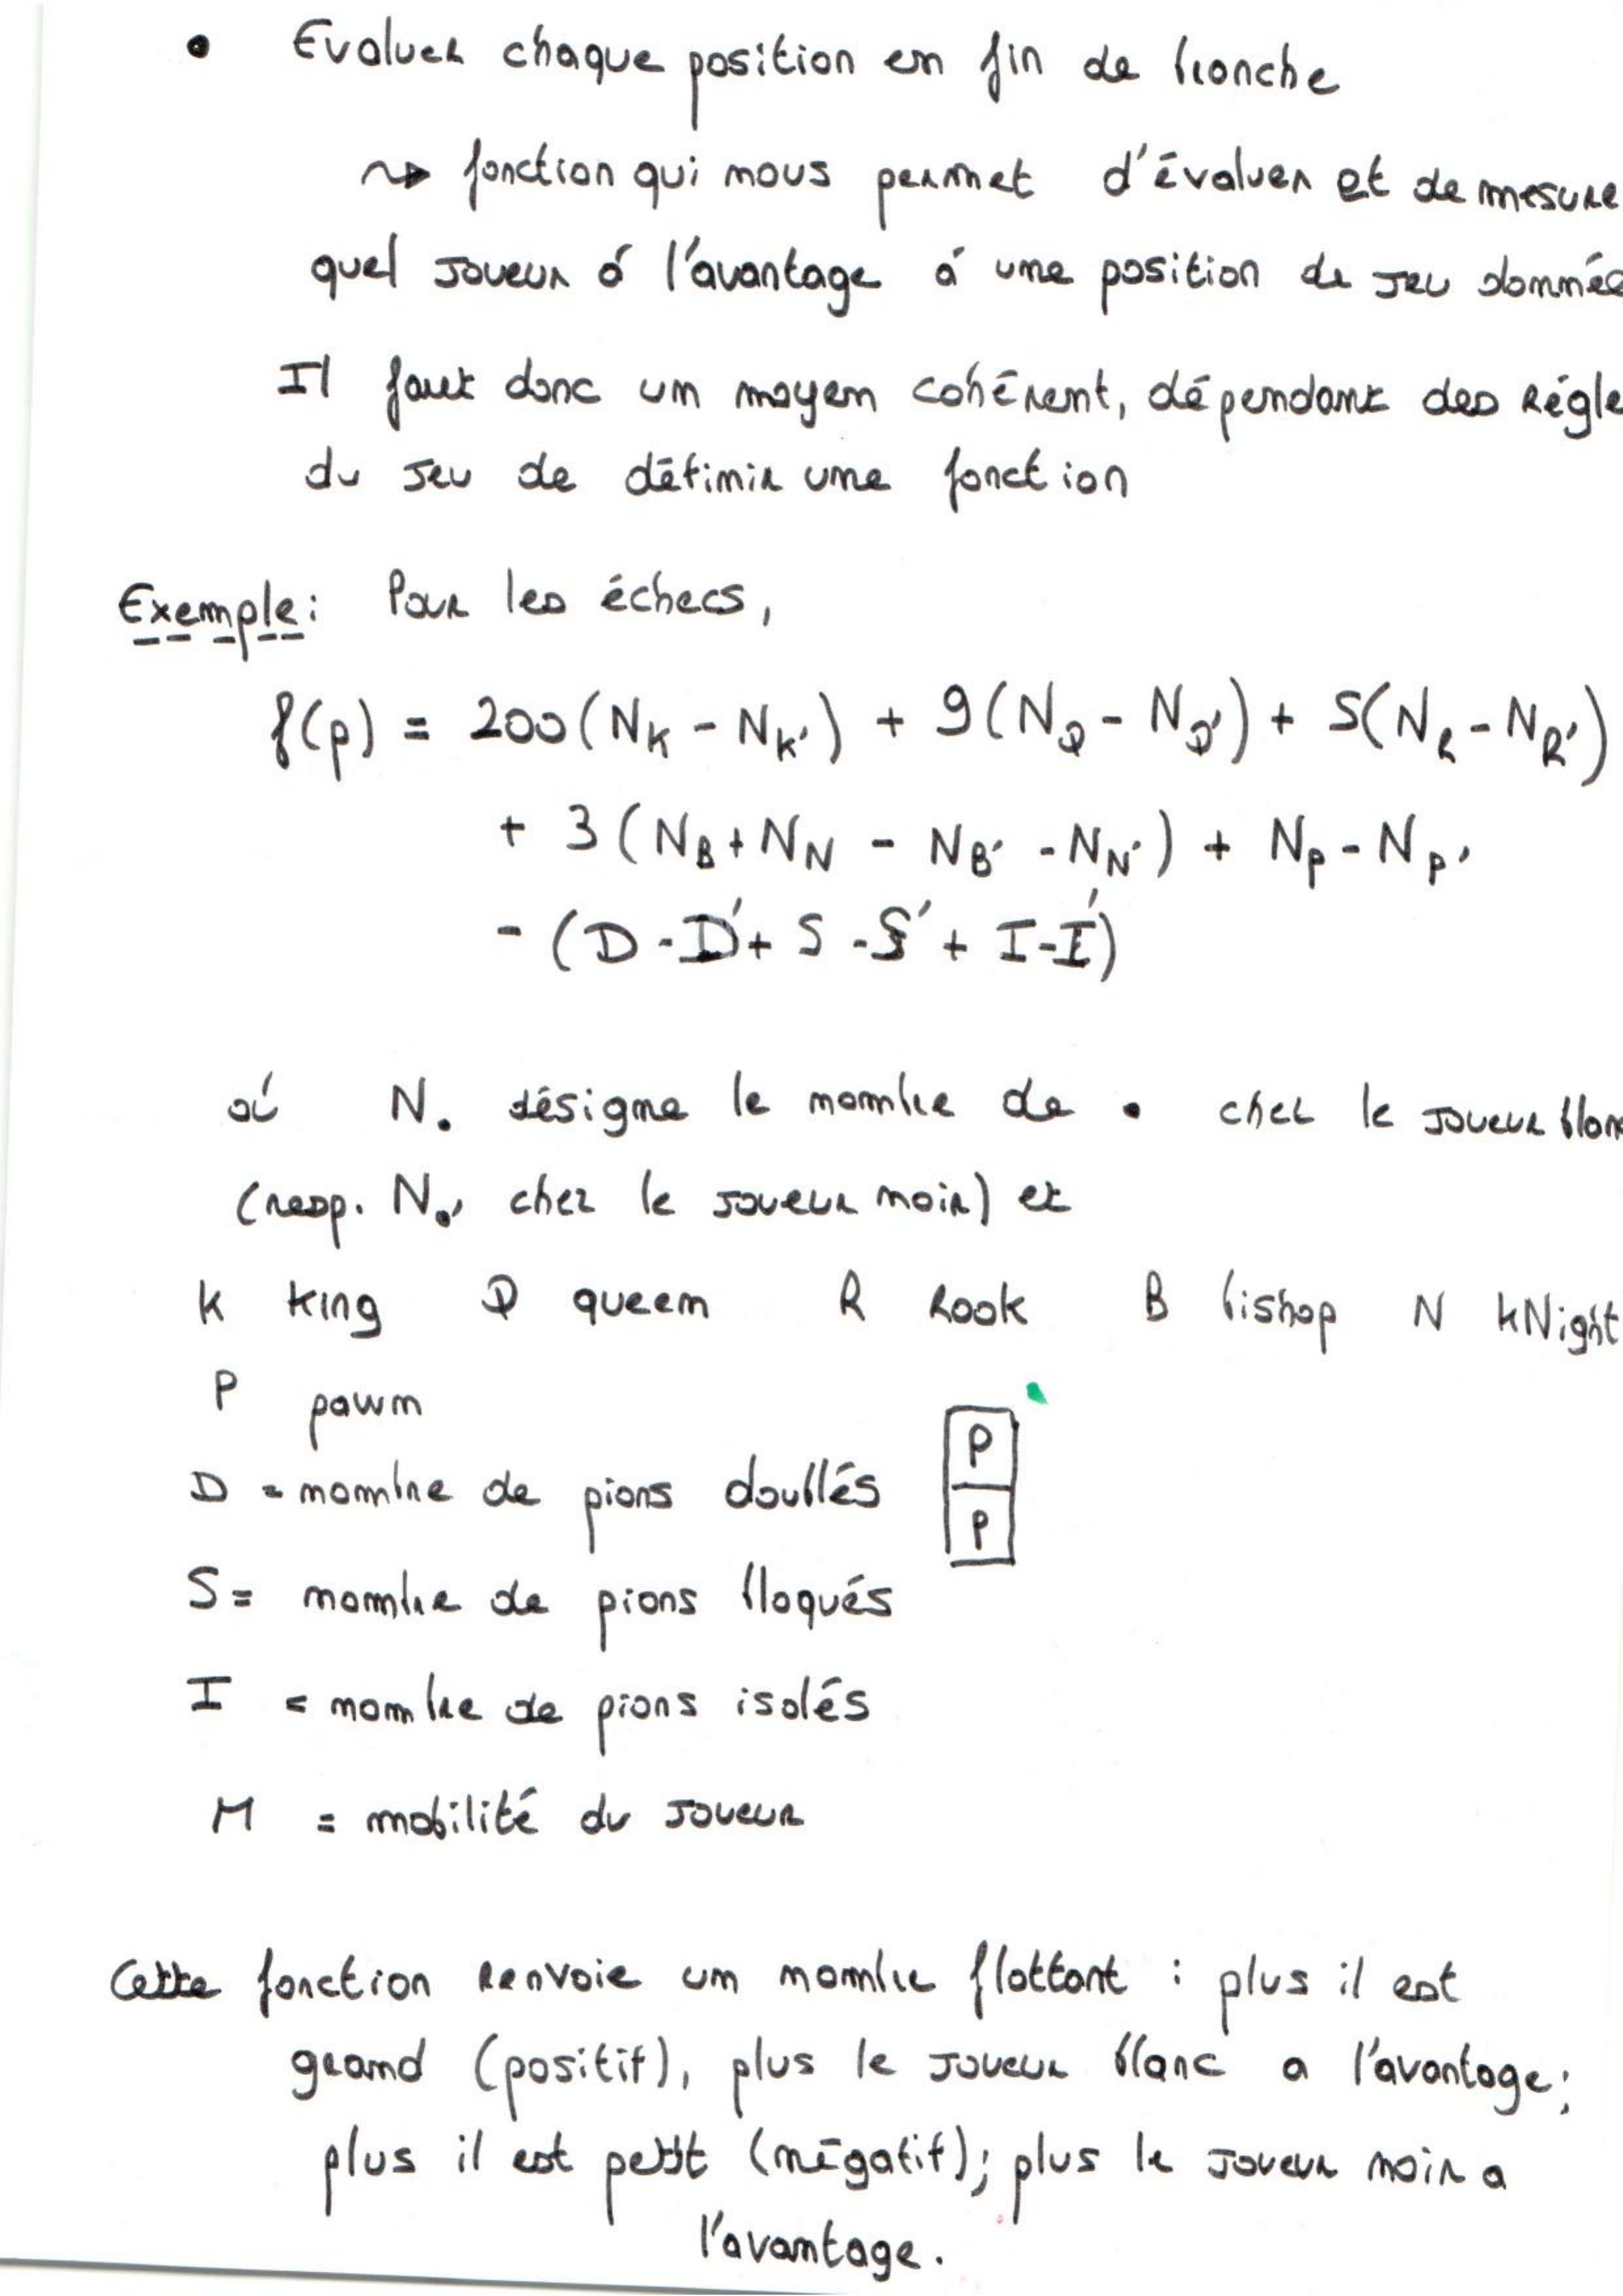 • Evaluer chaque position en fin de branche
⇝ fonction qui nous permet d'évaluer et de mesure
quel joueur á l'avantage á une position de jeu donnée
Il faut donc un moyen cohérent, dépendant des régle
du jeu de définir une fonction
Exemple: Pour les échecs,
f(p) = 200(N_K - N_K') + 9(N_Q - N_Q') + 5(N_R - N_R')
+ 3(N_B + N_N - N_B' - N_N') + N_P - N_P'
- (D - D' + S - S' + I - I')
oú N. désigne le nombre de • chez le joueur blan
(resp. N.' chez le joueur noir) et
K king Q queen R Rook B bishop N kNight
P pawn
D = nombre de pions doublés
P
P
S = nombre de pions bloqués
I = nombre de pions isolés
M = mobilité du joueur
Cette fonction renvoie un nombre flottant : plus il est
grand (positif), plus le joueur blanc a l'avantage;
plus il est petit (négatif); plus le joueur noir a
l'avantage.